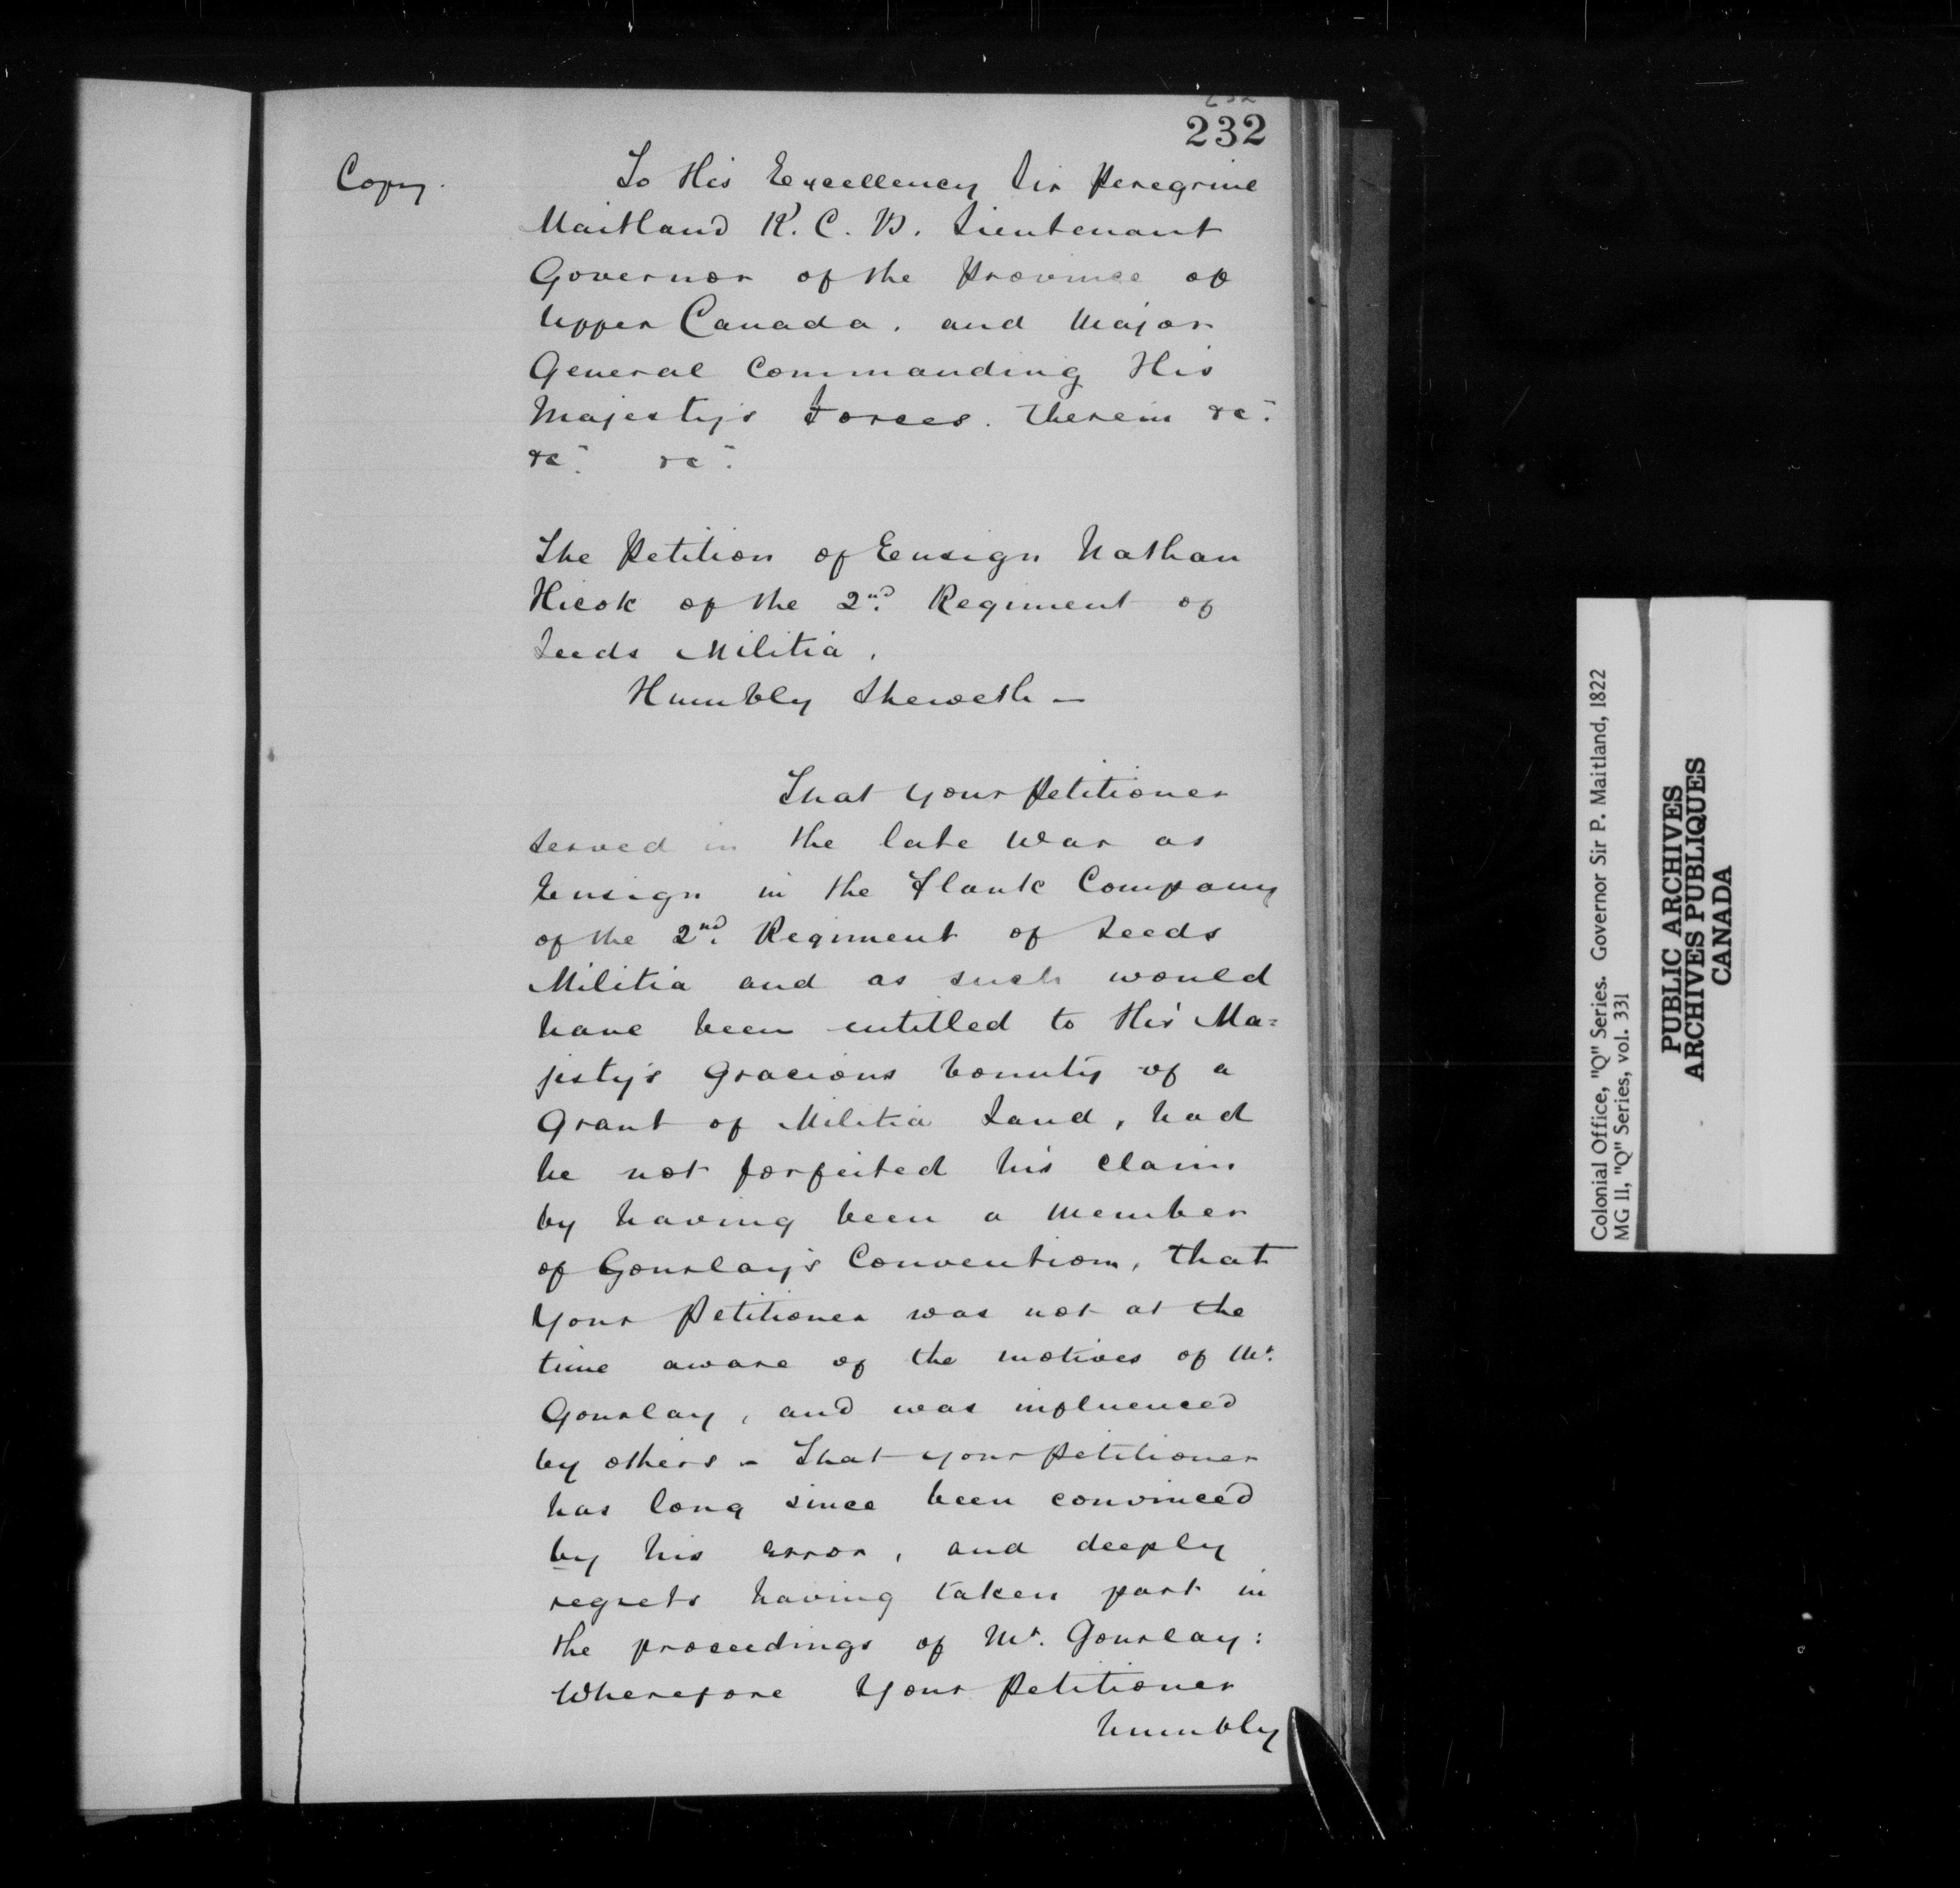 232
Copy.
To His Excellency Sir Peregrine
Maitland K. C. B. Lieutenant
Governor of the Province of
Upper Canada. and Major
General Commanding His
Majesty's Forces. therein &c.
&c. &c.
The Petition of Ensign Nathan
Hicok of the 2nd. Regiment of
Leeds Militia.
Humbly Sheweth —
That your Petitioner
served in the late War as
Ensign in the Flank Company
of the 2nd. Regiment of Leeds
Militia and as such would
have been entitled to His Ma=
jesty's Gracious bounty of a
Grant of Militia Land, had
he not forfeited his claim
by having been a member
of Gourlay's Convention, that
Your Petitioner was not at the
time aware of the motives of Mr.
Gourlay, and was influenced
by others - That your Petitioner
has long since been convinced
by his error, and deeply
regrets having taken part in
the proceedings of Mr. Gourlay:
Wherefore Your Petitioner
humbly
Colonial Office, "Q" Series. Governor Sir P. Maitland, 1822
MG 11, "Q" Series, vol. 331
PUBLIC ARCHIVES
ARCHIVES PUBLIQUES
CANADA